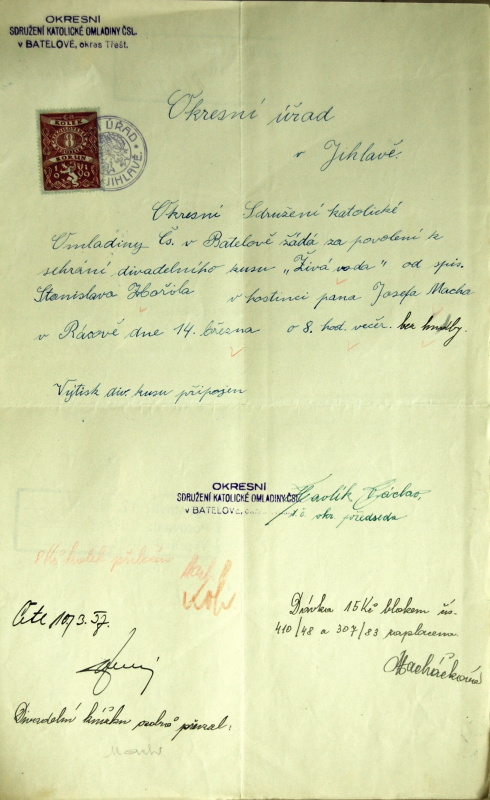 OKRESNÍ
SDRUŽENÍ KATOLICKÉ OMLADINY ČSL.
v BATELOVĚ, okres Třešť.
KOLEK
8
KORUN
ÚŘAD
JIHLAVĚ
Okresní úřad
v Jihlavě.
Okresní Sdružení katolické
Omladiny Čs. v Batelově žádá za povolení k
sehrání divadelního kusu „Živá voda" od spis.
Stanislava v hostinci pana Josefa Macha
v Rácově dne 14. března o 8. hod. večer. bez hudby.
Výtisk div. kusu připojen
OKRESNÍ
SDRUŽENÍ KATOLICKÉ OMLADINY ČSL.
v BATELOVĚ,
Havlík Václav
t.č. okr. předseda
Dávka 15 Kč blokem čís.
410/48 a 307/83 zaplacena
Macháčková
10/3. 37.
Divadelní knížku